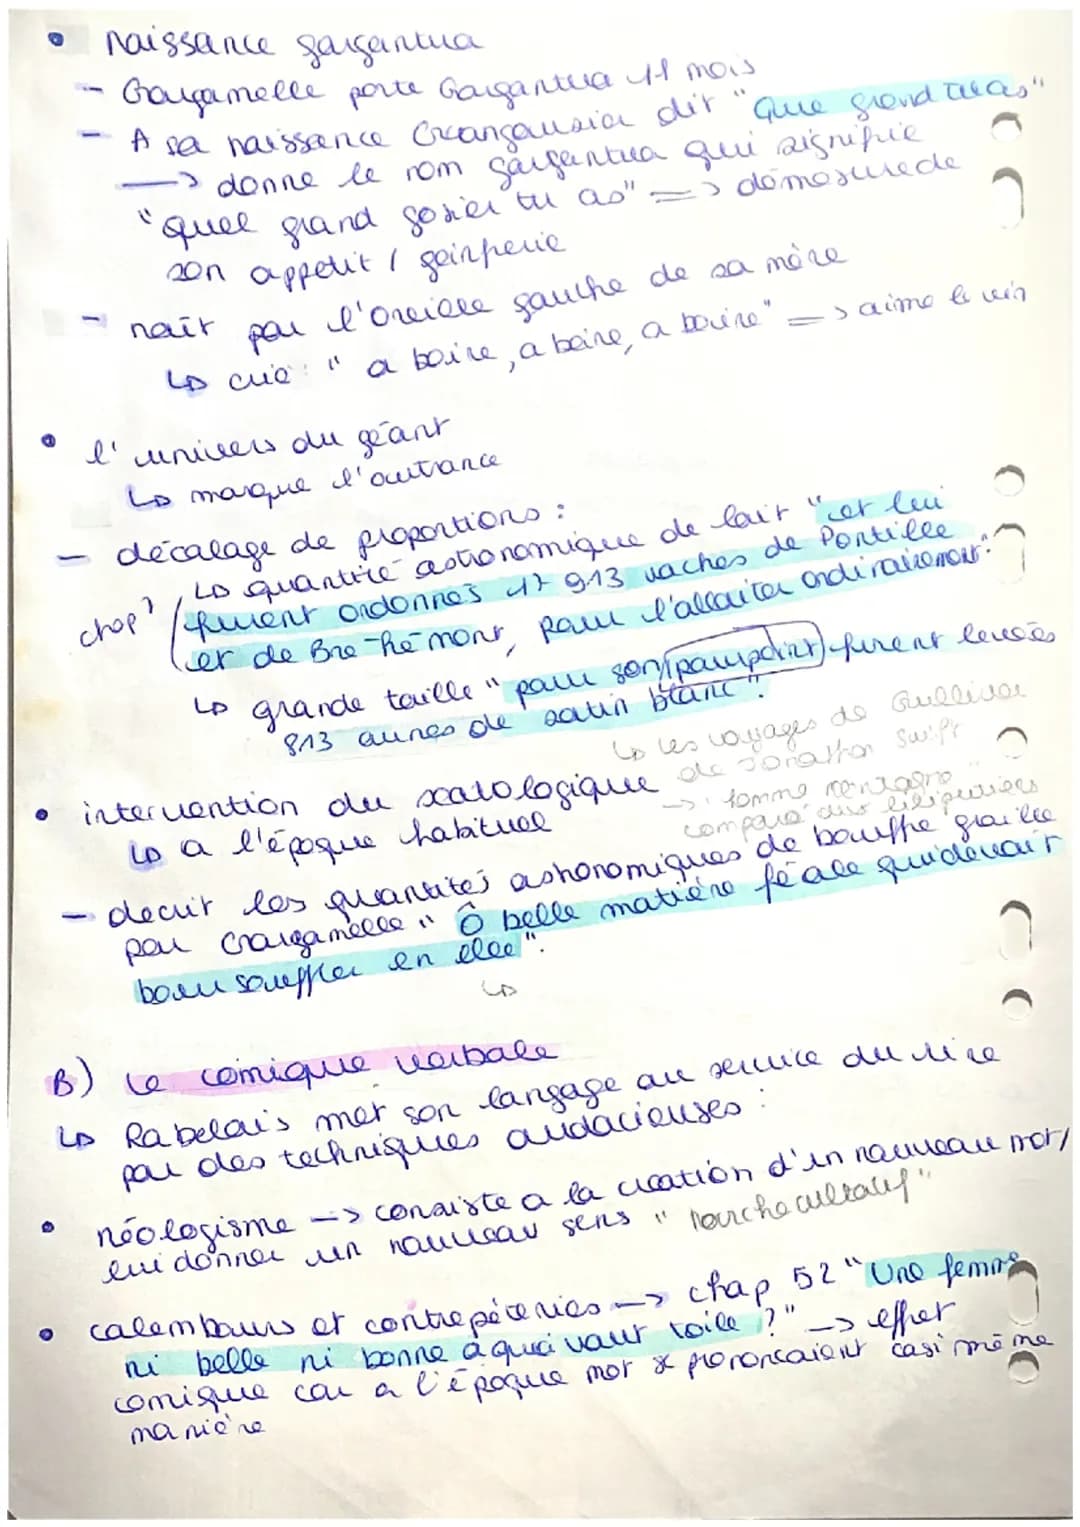 • naissance gargantua
- Gargamelle porte Gargantua 11 mois
- A sa naissance Grangousier dit "Que grand tu as"
—> donne le nom gargantua qui signifie
"quel grand gosier tu as" => démesure de
son appetit /
- nait par l'oreille gauche de sa mère
↳ crie : " a boire, a boire, a boire" => aime le vin
• l'univers du géant
↳ marque l'outrance
- décalage de proportions :
↳ quantité astronomique de lait "et lui
chap 7 furent ordonnés 17 913 vaches de Pontille
et de Bre-hémont, pour l'allaiter ordinairement".
↳ grande taille " pour son pourpoint furent levées
813 aunes de satin blanc".
↳ les voyages de Gulliver
de Jonathan Swift
-> "homme montagne"
comparé aux liliputiens
• intervention du scatologique
↳ a l'époque habituel
- decrit les quantités astronomiques de bouffe
par Gargamelle " Ô belle matière fécale qui devait
boursouffler en elle".
↳
B) Le comique verbale
↳ Rabelais met son langage au service du rire
par des techniques audacieuses :
• néologisme —> consiste a la création d'un nouveau mot/
lui donner un nouveau sens " torcheculatif"
• calembours et contrepèteries —> chap 52 "Une femme
ni belle ni bonne à quoi vaut toile ?" —> effet
comique car a l'époque mot se prononçaient casi même
manière